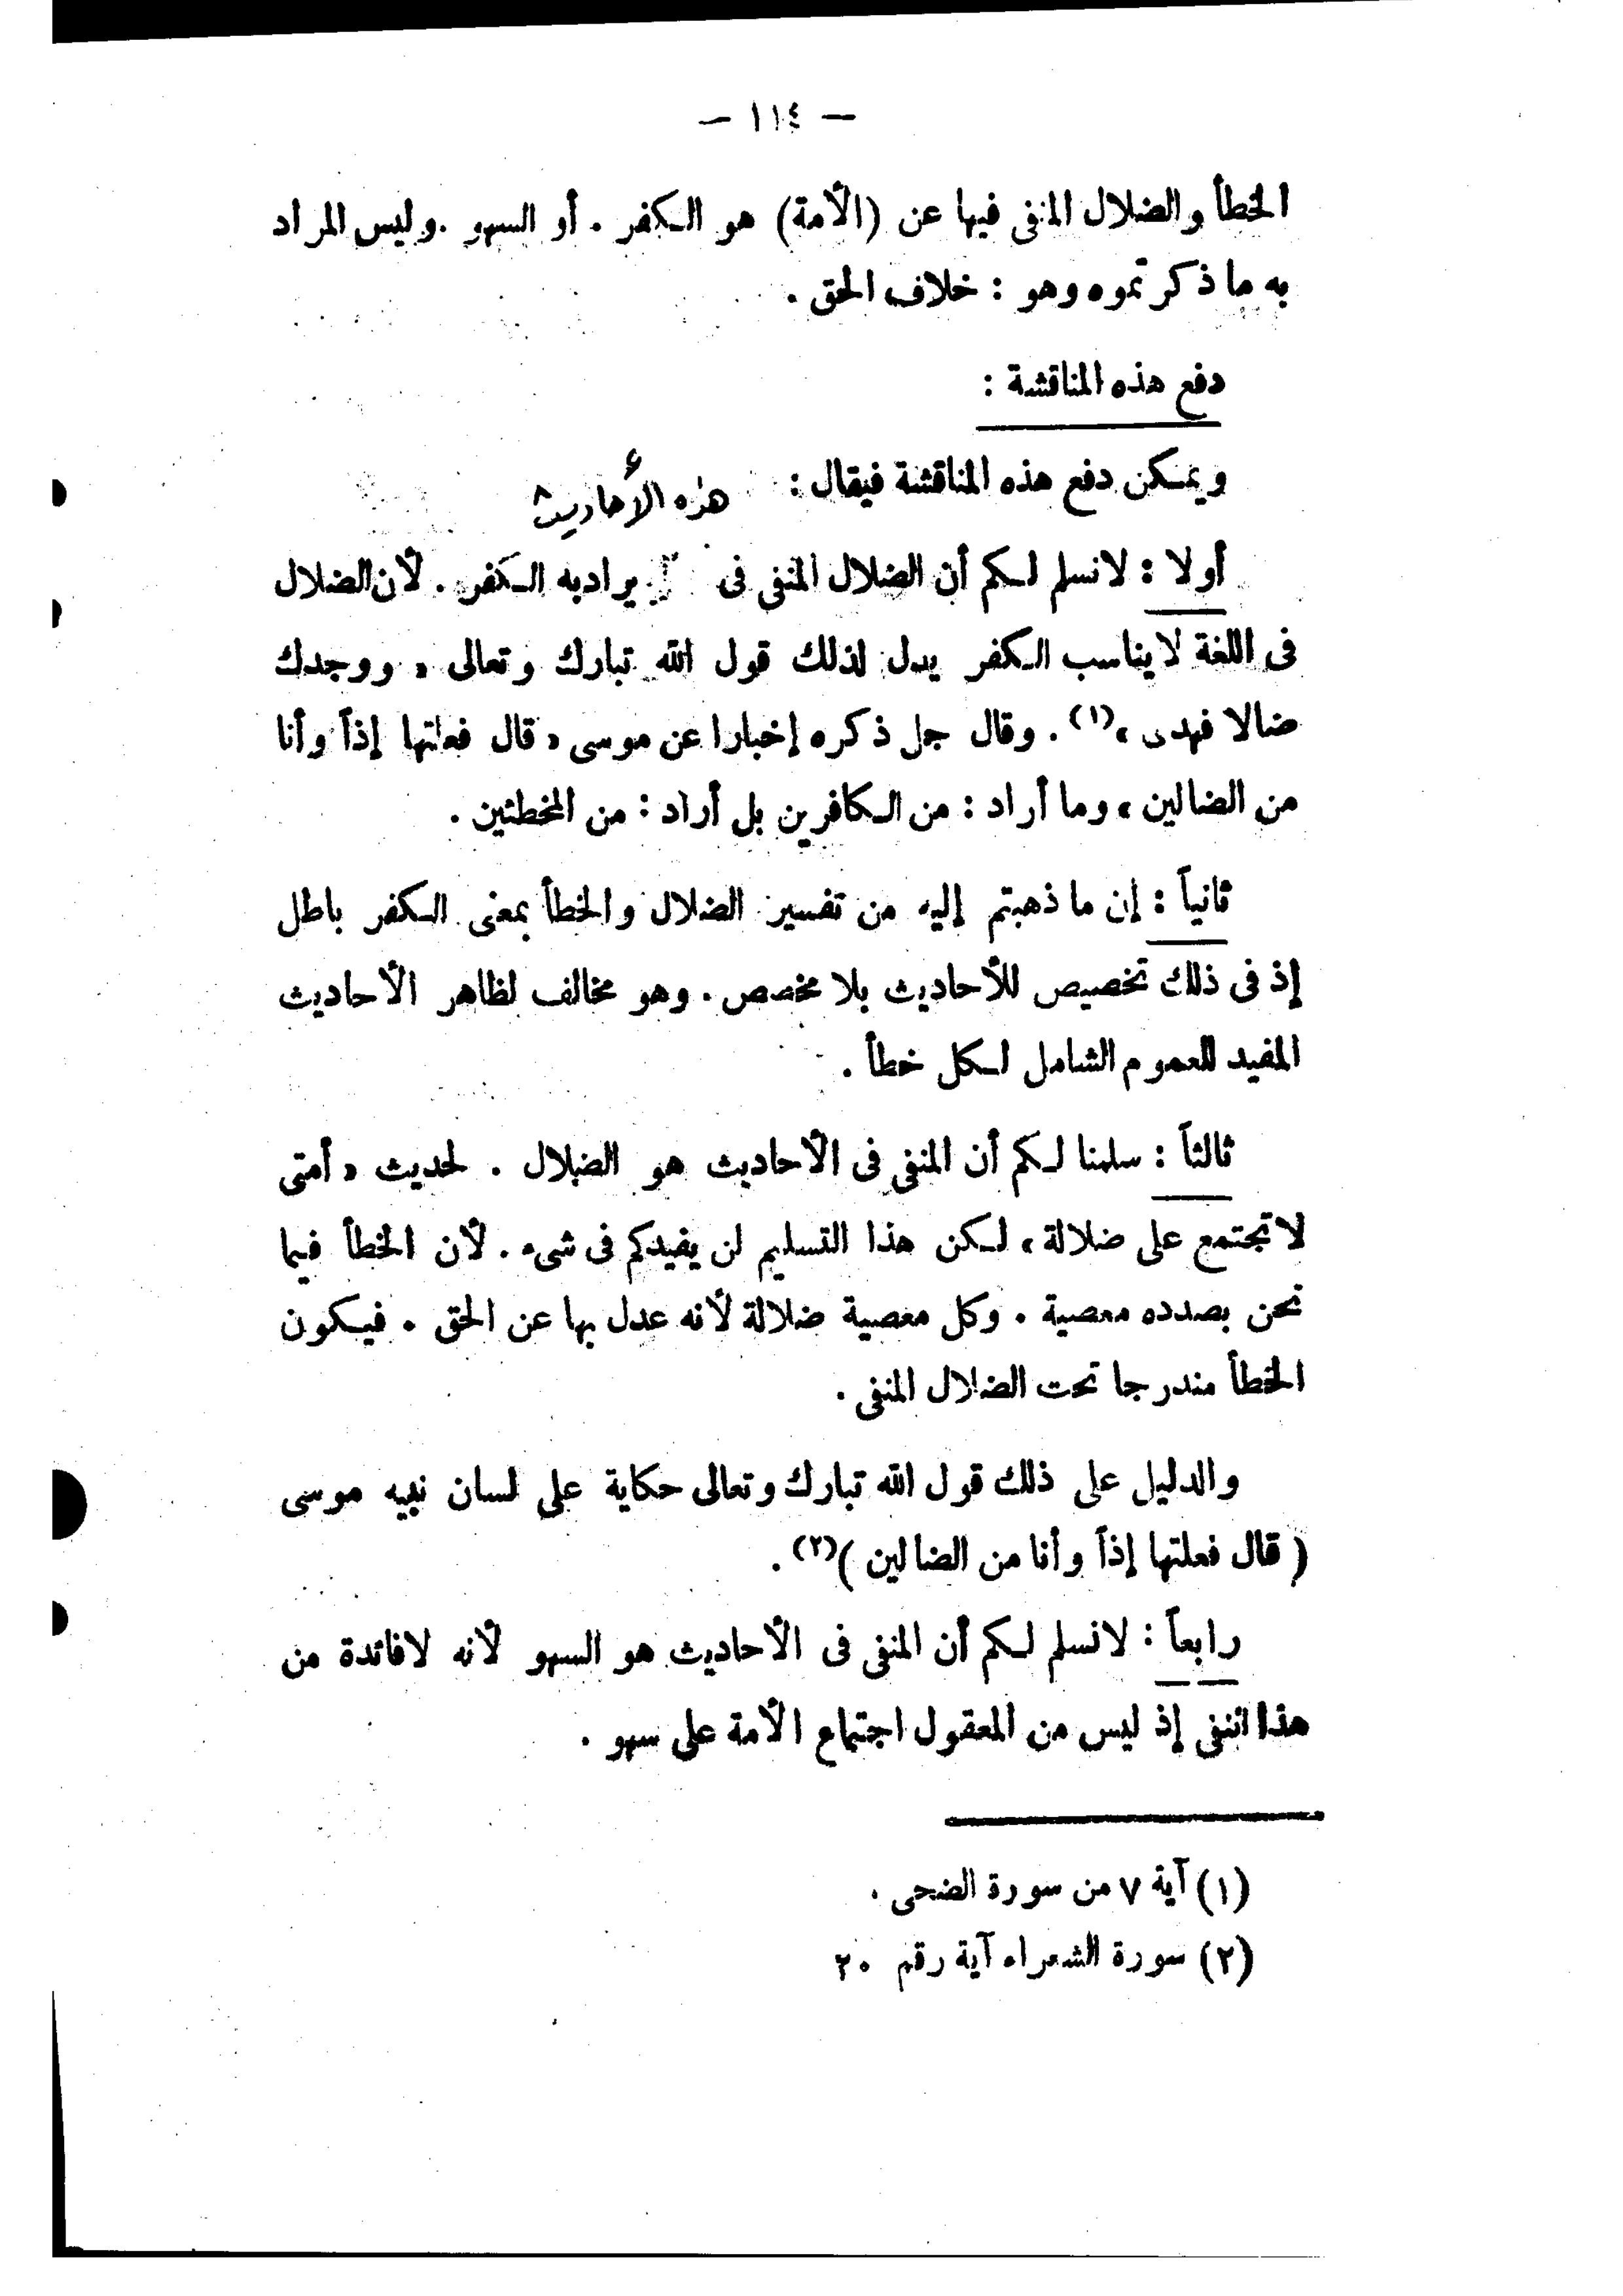 — ١١٤ —
الخطأ والضلال المنفى فيها عن (الأمة) هو الكفر . أو السهو . وليس المراد
به ما ذكرتموه وهو : خلاف الحق .
دفع هذه المناقشة :
ويمكن دفع هذه المناقشة فيقال :
هذه الأحاديث
أولا : لا نسلم لكم أن الضلال المنفى فى يراد به الكفر . لأن الضلال
فى اللغة لا يناسب الكفر يدل لذلك قول الله تبارك وتعالى « ووجدك
ضالا فهدى »(١) . وقال جل ذكره إخبارا عن موسى « قال فعلتها إذاً وأنا
من الضالين » وما أراد : من الكافرين بل أراد : من المخطئين .
ثانياً : إن ما ذهبتم إليه من تفسير الضلال والخطأ بمعنى الكفر باطل
إذ فى ذلك تخصيص للأحاديث بلا مخصص . وهو مخالف لظاهر الأحاديث
المفيد للعموم الشامل لكل خطأ .
ثالثاً : سلمنا لكم أن المنفى فى الأحاديث هو الضلال . لحديث « أمتى
لا تجتمع على ضلالة » لكن هذا التسليم لن يفيدكم فى شىء . لأن الخطأ فيما
نحن بصدده معصية . وكل معصية ضلالة لأنه عدل بها عن الحق . فيكون
الخطأ مندرجا تحت الضلال المنفى .
والدليل على ذلك قول الله تبارك وتعالى حكاية على لسان نبيه موسى
( قال فعلتها إذاً وأنا من الضالين )(٢) .
رابعاً : لا نسلم لكم أن المنفى فى الأحاديث هو السهو لأنه لا فائدة من
هذا النفى إذ ليس من المعقول اجتماع الأمة على سهو .
(١) آية ٧ من سورة الضحى .
(٢) سورة الشعراء آية رقم ٢٠